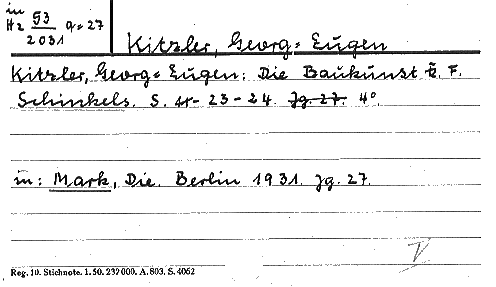 in
Hz 53/2031 a=27
Kitzler, Georg=Eugen
Kitzler, Georg=Eugen: Die Baukunst K. F.
Schinkels. S. 23-24. Jg. 27. 4°.
in: Mark, Die. Berlin 1931. Jg. 27.
V
Reg. 10. Stichnote. 1. 50. 232000. A. 803. S. 4062